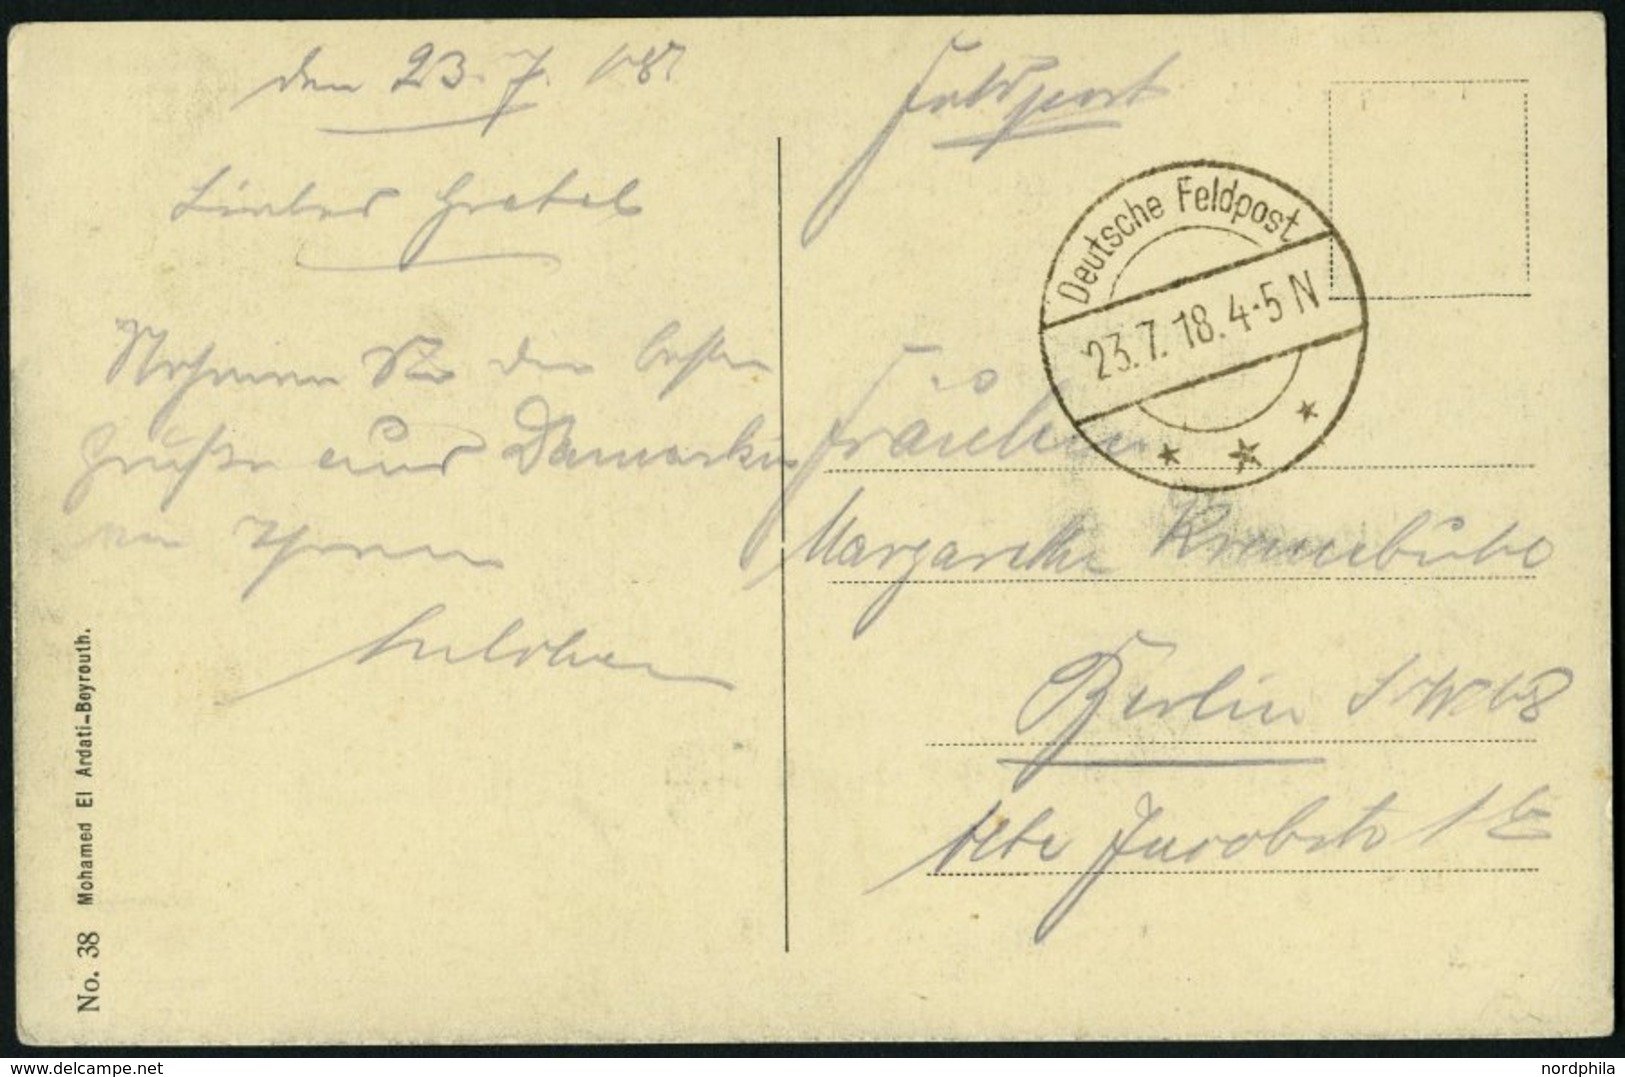 den 23.7.18.
Liebes Gretel
Nehmen Sie die besten
Grüße aus Damaskus
von Ihrem
No. 38 Mohamed El Ardati-Beyrouth.
Feldpost
Deutsche Feldpost
23.7.18.4-5 N
Fräulein
Margarethe
Berlin SW 68
Alte Jacobstr
www.delcampe.net
nordphila